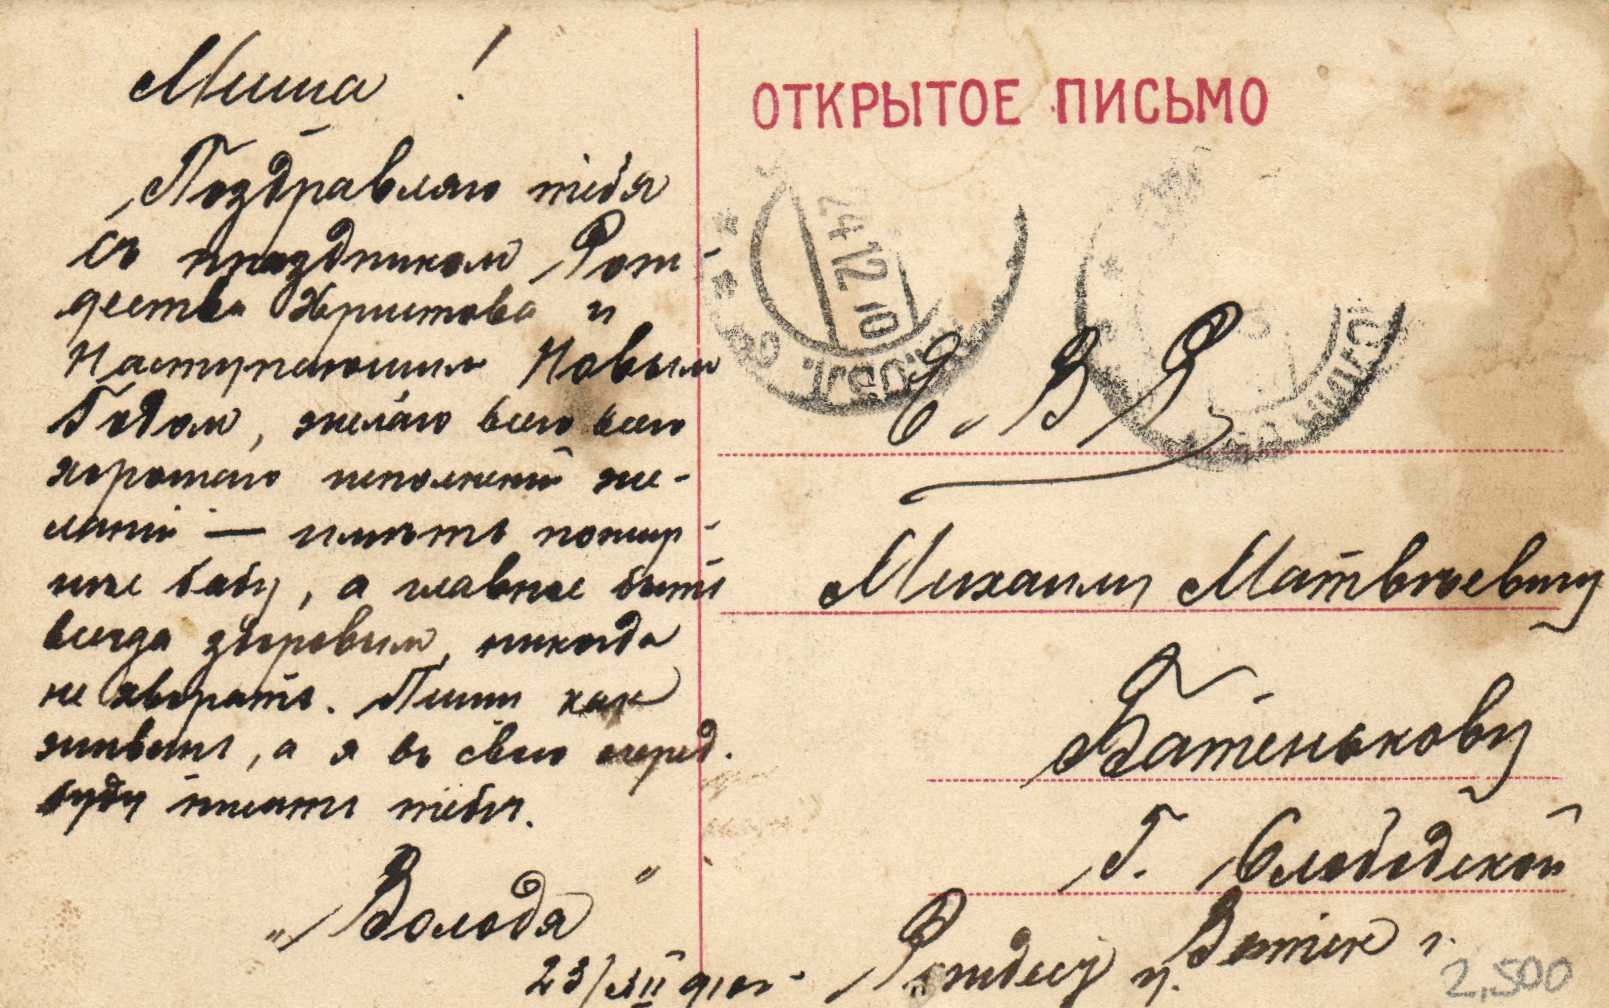 Миша!
Поздравляю тебя
съ праздником Рож-
дества Христова и
Наступающим Новым
Годом, желаю всего всего
хорошаго исполненiй же-
ланiй — имѣть пожир-
нѣе бабу, а главное быть
всегда здоровым, никогда
не хворать. Пиши как
живешь, а я въ свою очеред.
буду писать тебѣ.
"Володя"
23/XII 910г.
ОТКРЫТОЕ ПИСЬМО
24 12 10
Е. В Б
Михаилу Матвѣевичу
Батенькову
Г. Слободской
Вятск г.
2,500